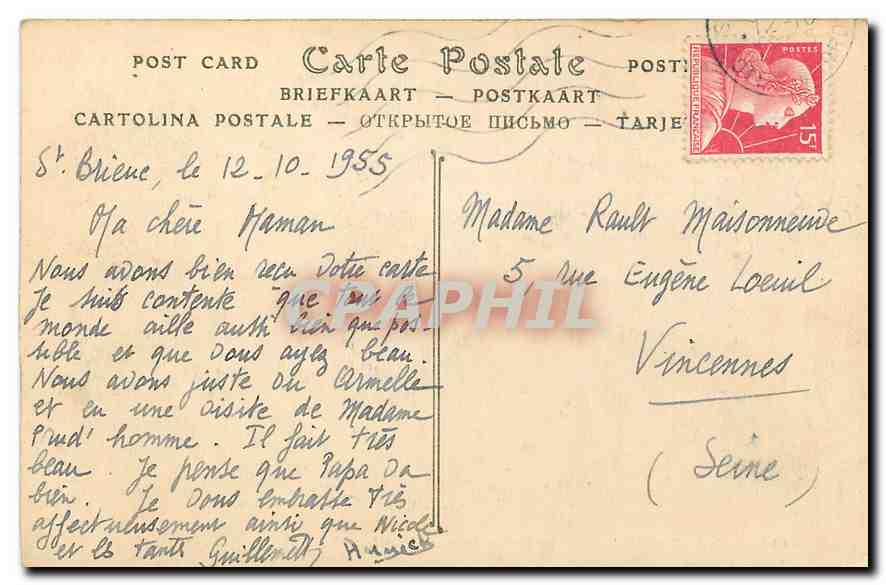 POST CARD Carte Postale POST
BRIEFKAART — POSTKAART
CARTOLINA POSTALE — ОТКРЫТОЕ ПИСЬМО — TARJE
POSTES
REPUBLIQUE FRANÇAISE
15F
St. Brieuc, le 12-10-1955
Ma chère Maman
Nous avons bien reçu votre carte
Je suis contente que tout le
monde aille aussi bien que pos-
sible et que vous ayez beau.
Nous avons juste vu Armelle
et eu une visite de Madame
Prud'homme. Il fait très
beau. Je pense que Papa va
bien. Je vous embrasse très
affectueusement ainsi que Nicole
et les tantes Guillemette Annick
Madame Rault Maisonneuve
5 rue Eugène Loeuil
Vincennes
(Seine)
CPAPHIL